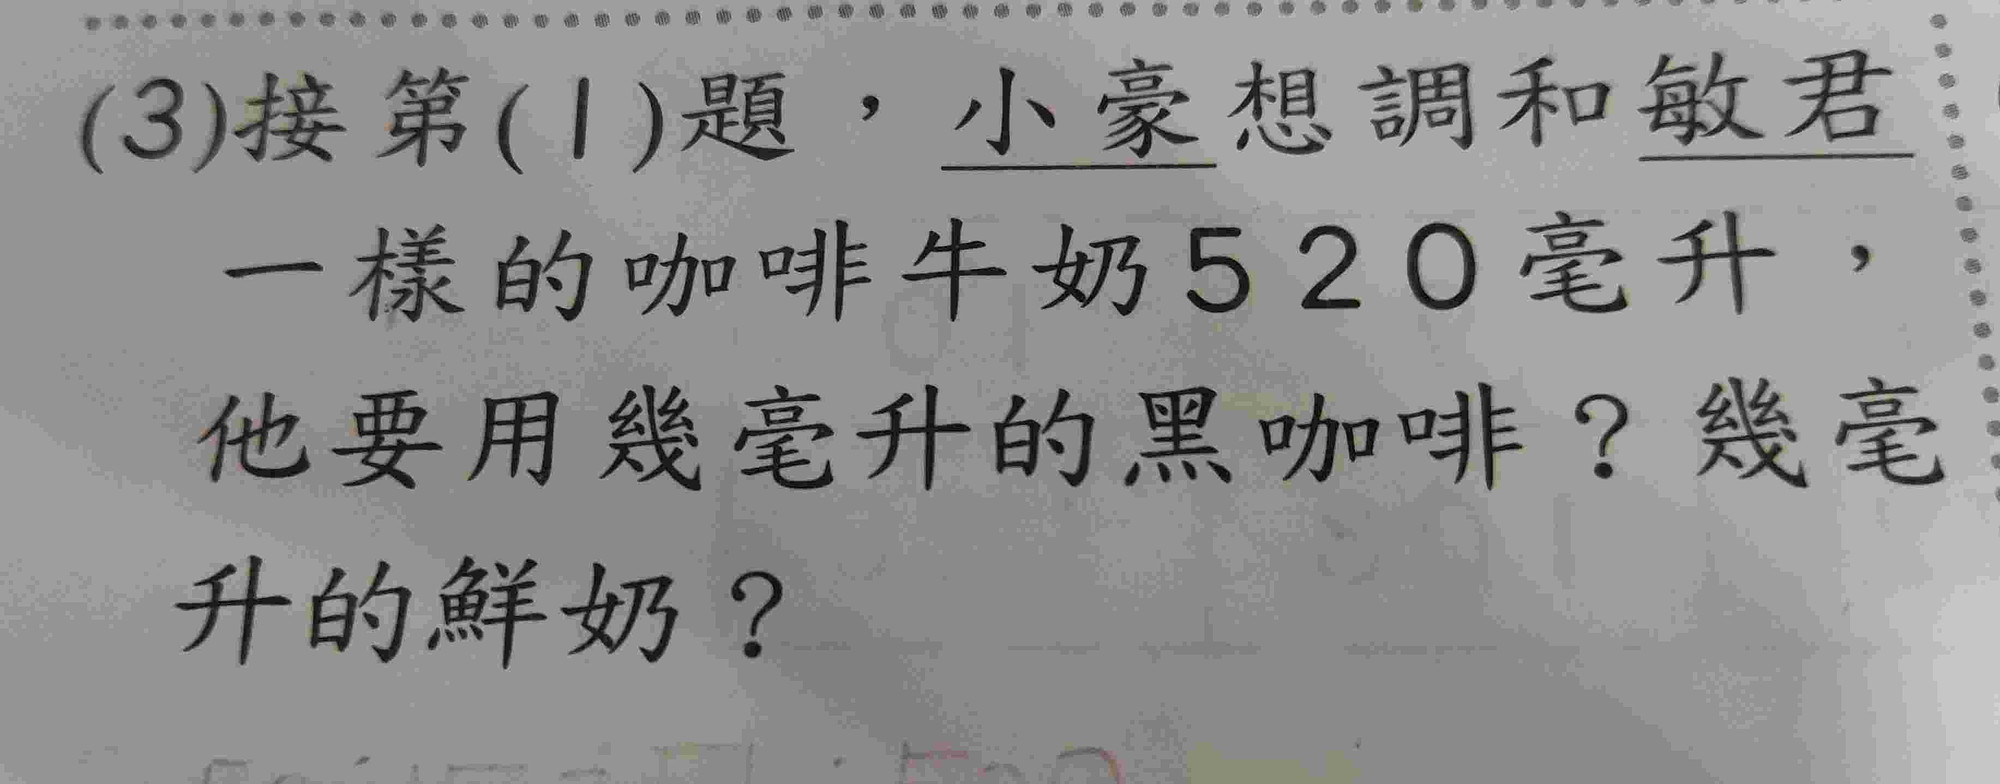 (3)接第(1)題，小豪想調和敏君
一樣的咖啡牛奶520毫升，
他要用幾毫升的黑咖啡？幾毫
升的鮮奶？